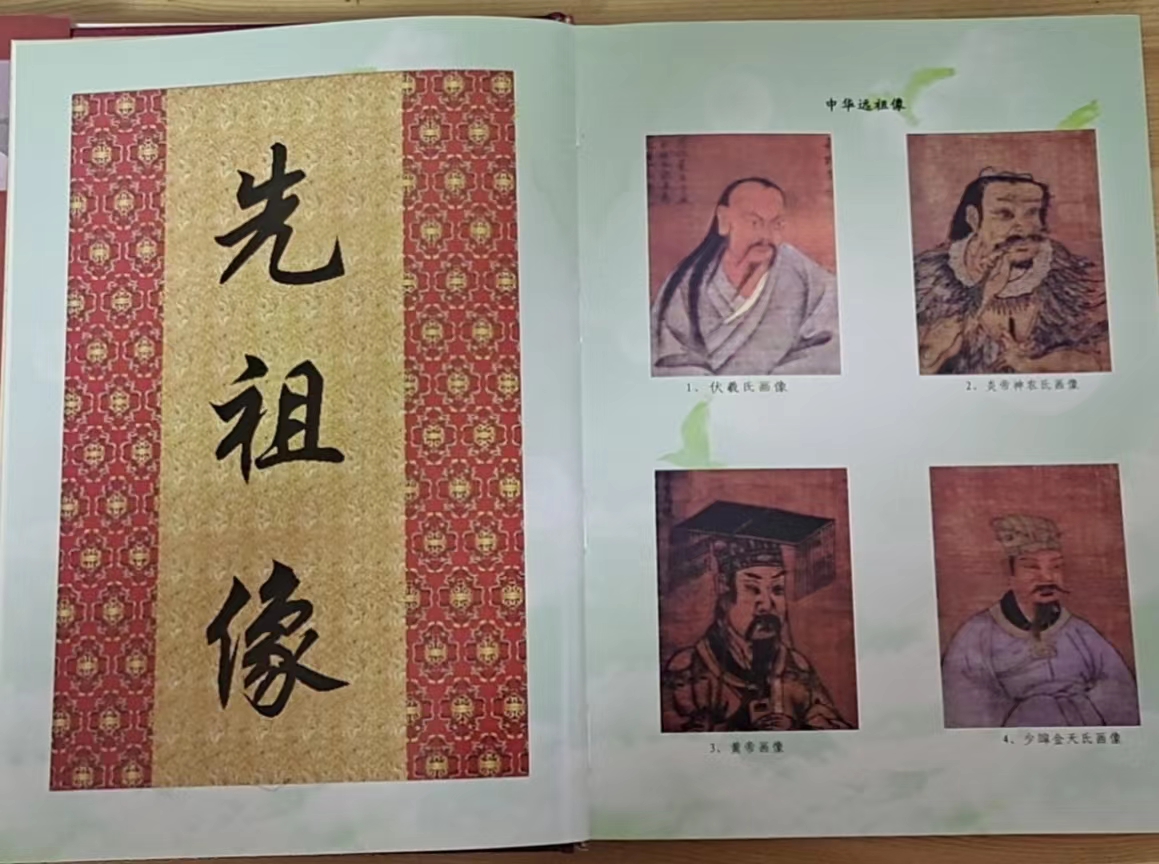 先祖像
中华远祖像
1、伏羲氏画像
2、炎帝神农氏画像
3、黄帝画像
4、少皞金天氏画像